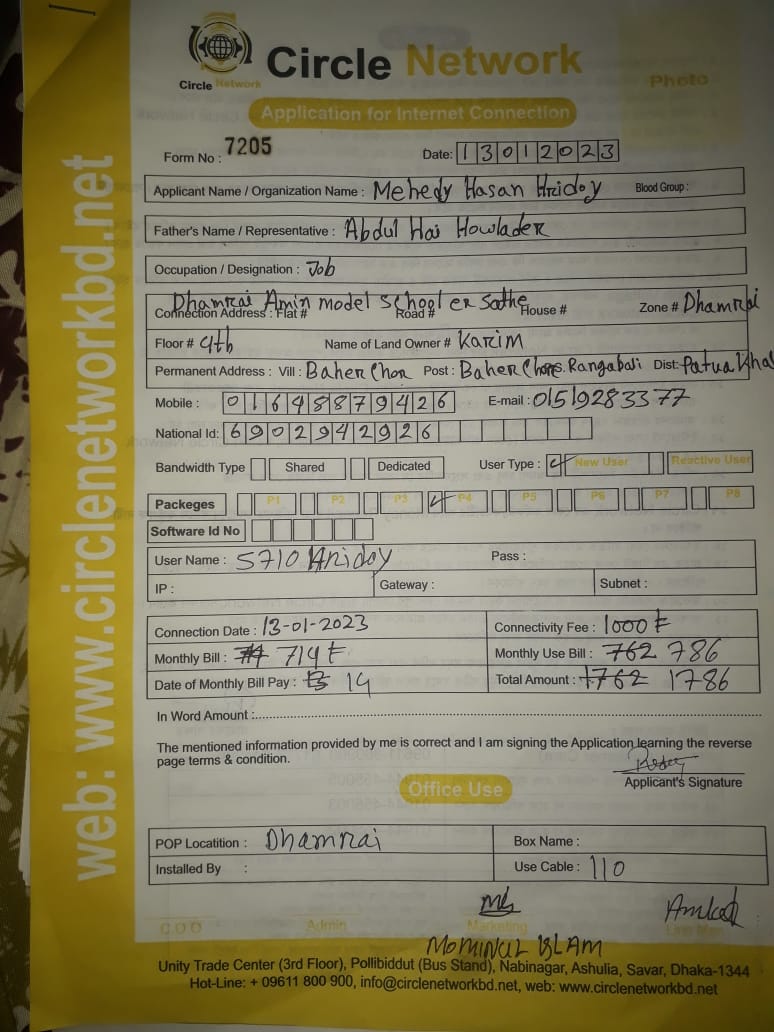 Circle Network
Circle Network
Photo
Application for Internet Connection
Form No : 7205
Date: 13012023
Applicant Name / Organization Name : Mehedy Hasan Hridoy Blood Group :
Father's Name / Representative : Abdul Hai Howlader
Occupation / Designation : Job
Dhamrai Amin model school er sathe
Connection Address : Flat # Road # House # Zone # Dhamrai
Floor # 4th Name of Land Owner # Karim
Permanent Address : Vill : Baher Chor Post : Baher Chor. Rangabali Dist: Patuakha
Mobile : 01648879426 E-mail : 01519283377
National Id: 6902942926
Bandwidth Type Shared Dedicated User Type : New User Reactive User
Packeges P1 P2 P3 P4 P5 P6 P7 P8
Software Id No
User Name : 5710 Hridoy Pass :
IP : Gateway : Subnet :
Connection Date : 13-01-2023 Connectivity Fee : 1000 ৳
Monthly Bill : 714 ৳ Monthly Use Bill : 762 786
Date of Monthly Bill Pay : 14 Total Amount : 1762 1786
In Word Amount :
The mentioned information provided by me is correct and I am signing the Application learning the reverse
page terms & condition.
Applicant's Signature
Office Use
POP Locatition : Dhamrai Box Name :
Installed By : Use Cable : 110
C O O Admin Marketing Line Man
Mominul Islam
Unity Trade Center (3rd Floor), Pollibiddut (Bus Stand), Nabinagar, Ashulia, Savar, Dhaka-1344
Hot-Line: + 09611 800 900, info@circlenetworkbd.net, web: www.circlenetworkbd.net
web: www.circlenetworkbd.net